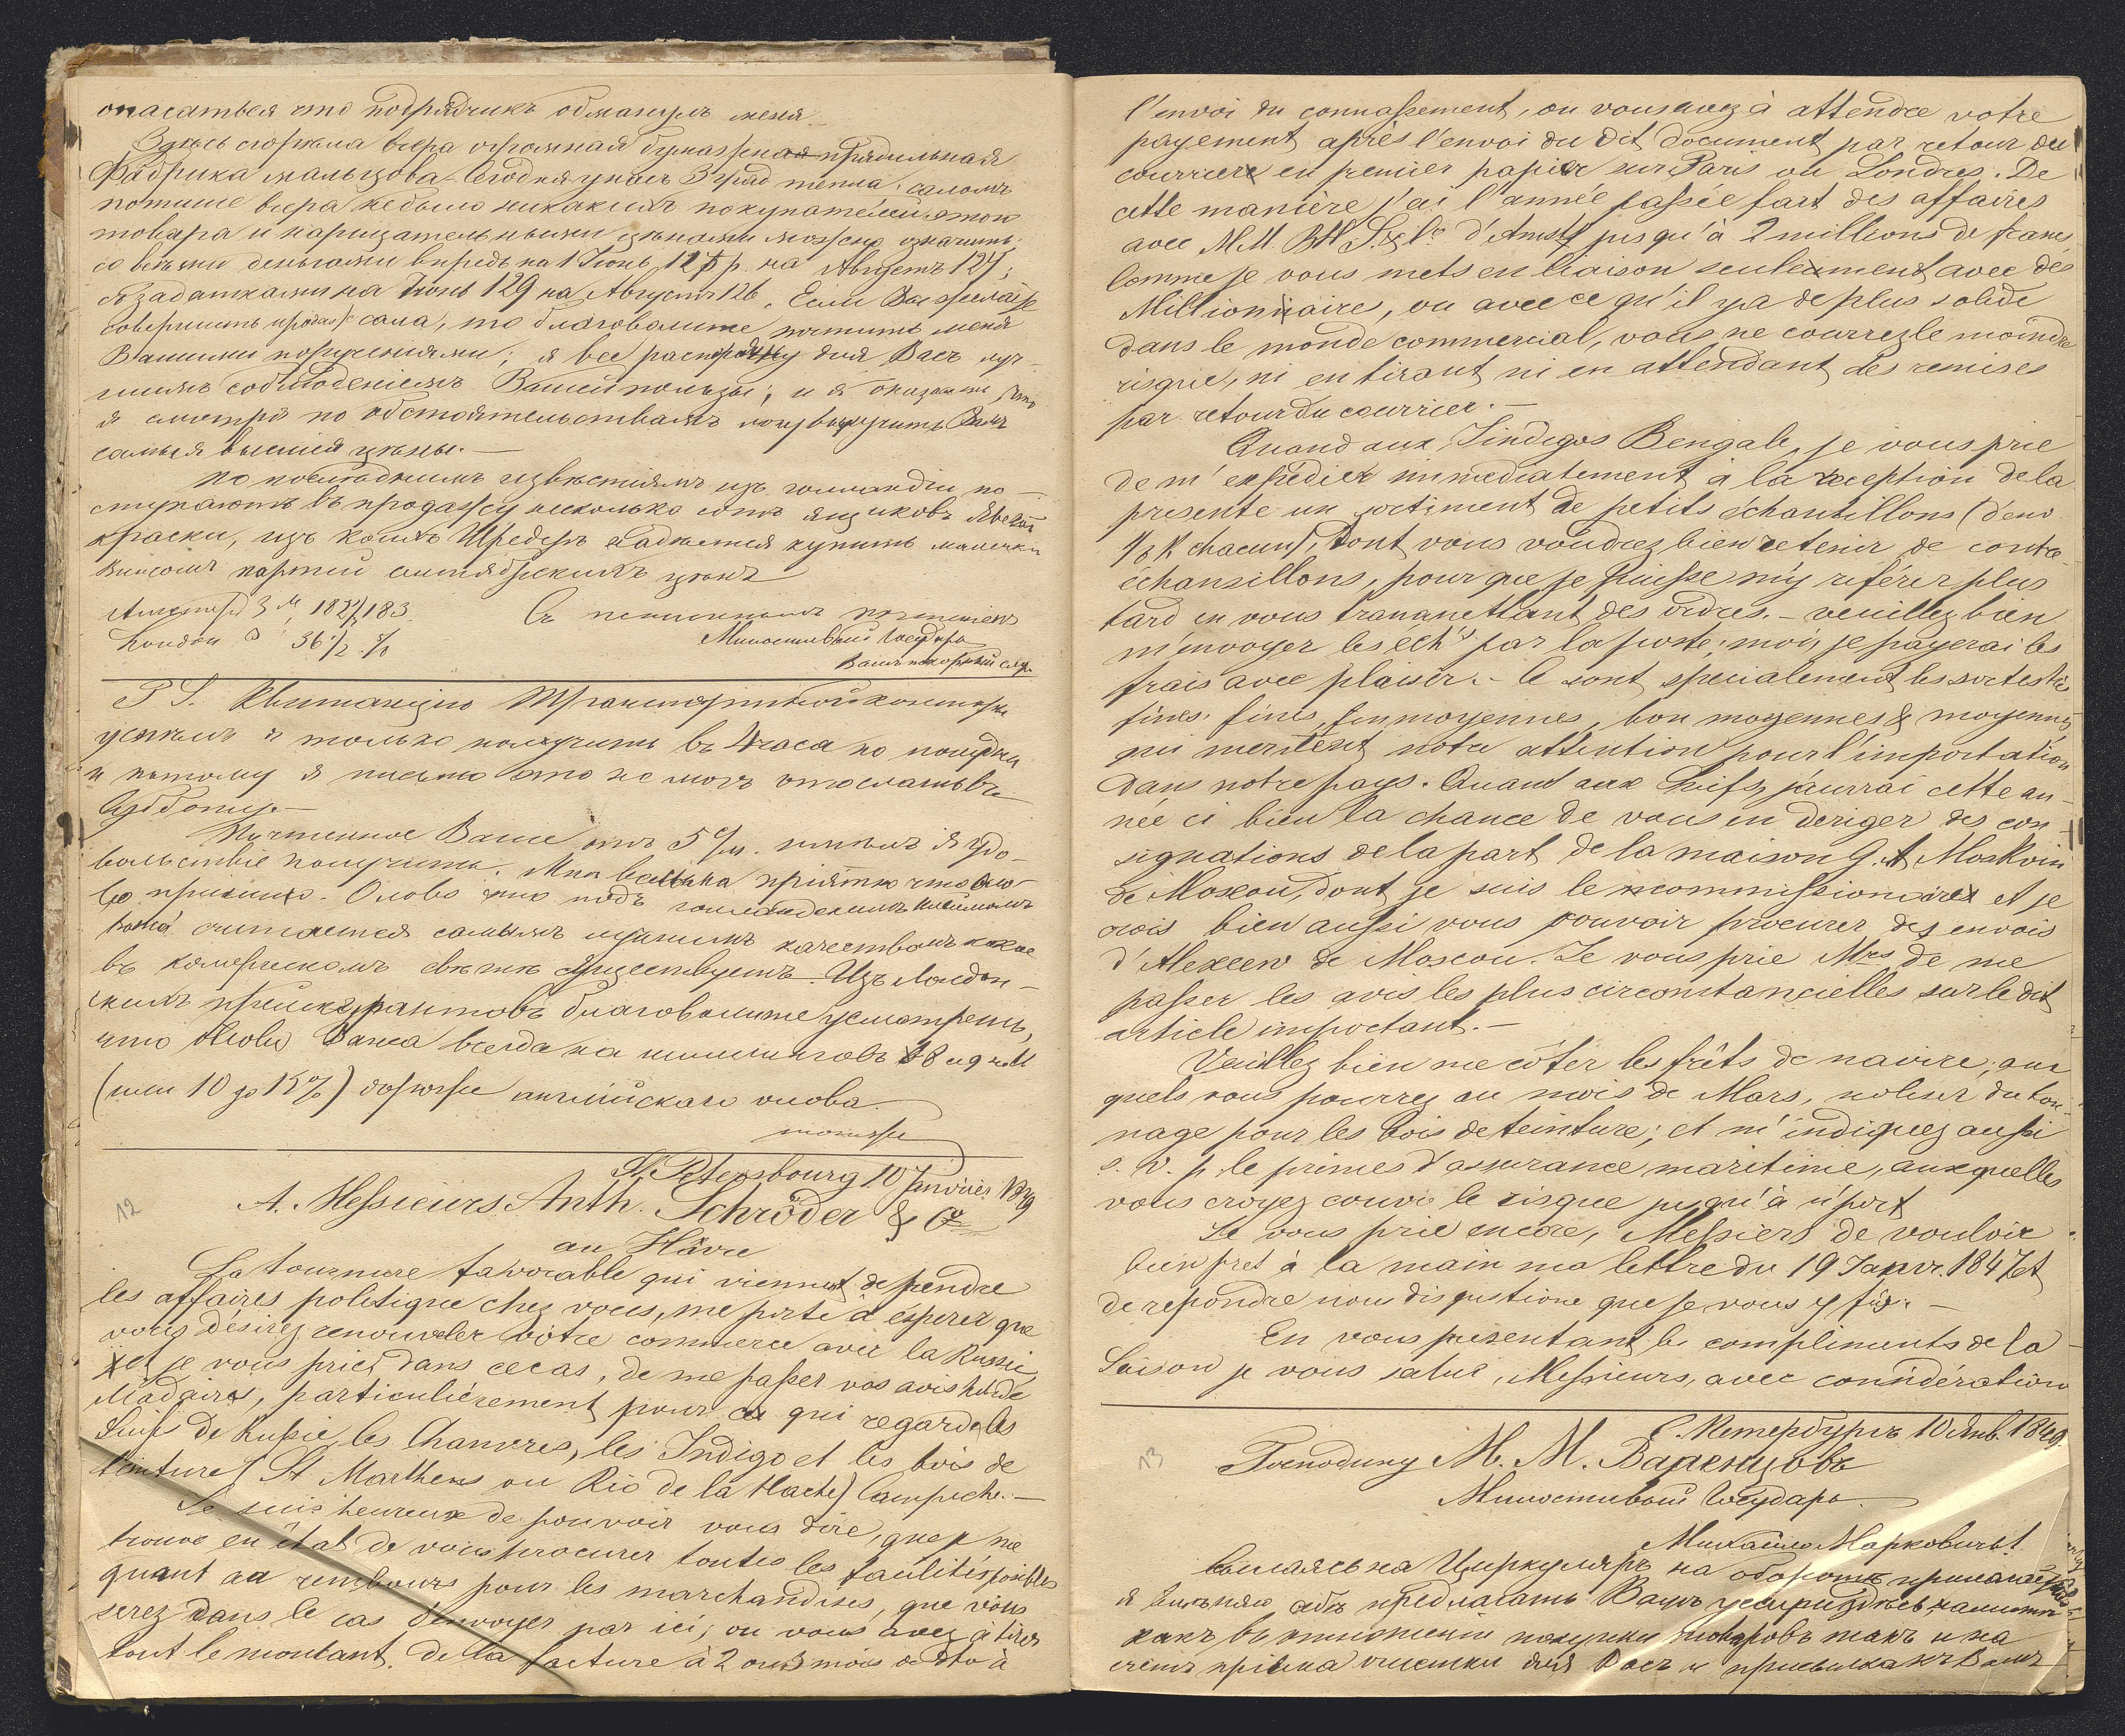 опасаться что подрядчикъ обманулъ меня
Здесь сгорела вчера огромная бумажная прядильная
Фабрика Мальцова. Сегодня у насъ 3 град тепла, саломъ
потише вчера небыло никакихъ покупателей
товара и нарицательными ценами можно означить;
со всеми деньгами впредь на 1 Iюнь 125 р. на Августъ 124;
съ задатками на Iюнь 129 на Августъ 126. Если Вы желаете
совершить продажу сала, то благоволите почтить меня
Вашими поручениями; я все для Васъ луч-
шимъ соблюденiемъ Вашей пользы; и я
я смотря по обстоятельствамъ могу выручить Вамъ
самыя высшiя цены.—
По последнимъ известiямъ изъ Голландiи по-
ступаютъ въ продажу несколько сотъ ящиковъ
краски, изъ коихъ Шредеръ надеется купить
партiи сентябрскихъ ценъ
Амстерд 3 M 182½/183. Съ истиннымъ почтенiемъ
London 3 " 36½ Милостивый Государь
Вашъ покорный слуг.
P. S. Квитанцiю Транспортной конторы
успелъ я только получить въ 4 часа по полудни
и потому я письмо это не могъ отослать въ
Субботу.—
Почтенное Ваше отъ 5 с/м. имелъ я удо-
вольствiе получить. Мне весьма прiятно что оло-
во пришло. Олово что подъ голландскимъ клеймомъ
Банка считается самымъ лучшимъ качествомъ какое
въ комерческомъ свете существуетъ. Изъ Лондон-
скихъ прейскурантовъ благоволите усмотреть,
что олово Банка всегда на шиллинговъ 8 и 9
(или 10 до 15%) дороже англiйскаго олова.
тотже
St. Petersbourg 10 Janvier 1849
12 A. Messieurs Anth. Schröder & Co
au Hâvre
La tournure favorable qui viennent de prendre
les affaires politique chez vous, me porte à espérer que
vous desirez renouveler votre commerce avec la Russie
et je vous prie, dans ce cas, de me passer vos avis
particulièrement pour ce qui regarde les
Suifs de Russie, les Chanvres, les Indigo et les bois de
teinture (St Marthens ou Rio de la Hache) Campeche.—
Je suis heureux de pouvoir vous dire, que je me
trouve en état de vous procurer toutes les facilités possibles
quant au rembours pour les marchandises, que vous
serez dans le cas d'envoyer par ici; ou vous avez à tirer
tout le montant de la facture à 2 ou 3 mois à
l'envoi du connaissement, ou vous avez à attendre votre
payement après l'envoi du dit document par retour du
courrier en premier papier sur Paris ou Londres. De
cette manière j'ai l'année passée fait des affaires
avec M.M. d'Amst jusqu'à 2 millions de francs
Comme je vous mets en liaison seulement avec des
Millionaire, ou avec ce qu'il y a de plus solide
dans le monde commercial, vous ne courrez le moindre
risque, ni en tirant ni en attendant des remises
par retour du courrier.—
Quand aux Jindigos Bengale, je vous prie
de m'expedier immediatement à la reception de la
presente un sortiment de petits échantillons (d'env
⅛ K chacun), dont vous voudrez bien retenir de contre
échansillons, pour que je puisse m'y referer plus
tard en vous transmettant des ordres.— veuillez bien
m'envoyer les éch's par la poste; moi, je payerai les
frais avec plaisir.— Ce sont specialement les sortes très
fines, fines, fin moyennes, bon moyennes & moyennes
qui meritent notre attention pour l'importation
dans notre pays. Quand aux Suifs, j'aurrai cette an-
née ci bien la chance de vous en deriger des con-
signations de la part de la maison G. A Moskvin
de Moscou, dont je suis le commissionaire et je
crois bien aussi vous pouvoir procurer des envois
d'Alexeew de Moscou. Je vous prie Mrs de me
passer les avis les plus circonstancielles sur le dit
article important.—
Veuillez bien me côter les frêts de navire, aux
quels vous pourrez au mois de Mars, noliser du ton-
nage pour les bois de teinture; et m'indiquez aussi
s. v. p. le primes d'assurance maritime, auxquelles
vous croyez couvrir le risque jusqu'à n/port
Je vous prie encore, Messiers de vouloir
bien pret à la main ma lettre du 19 Janvr. 1847 et
de repondre que je vous y fis.—
En vous presentant les compliments de la
Saison je vous salue, Messieurs, avec considération
С. Петербургъ 10 Янв. 1849.
13 Господину М. М. Варенцовъ
Милостивый Государь
Михаило Марковичь!
Ссылаясь на Циркуляръ на обороте
я предлагать Вамъ услуги
какъ въ отношенiи покупки товаровъ такъ и на
счетъ прiема очистки для Васъ и присылка къ Вамъ